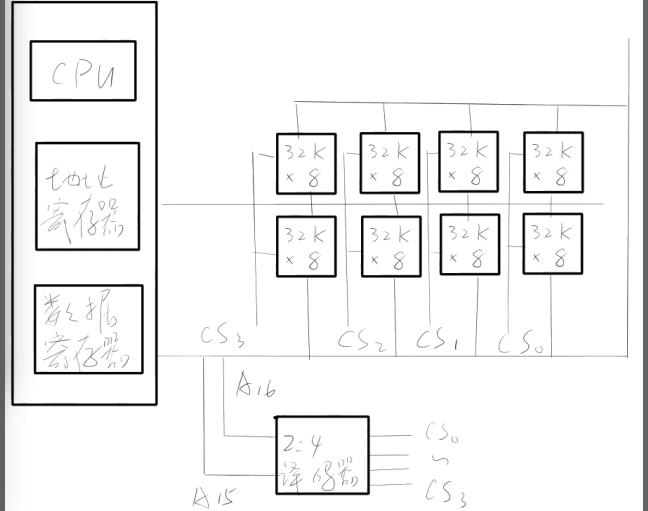 CPU
地址
寄存器
数据
寄存器
32K
×8
32K
×8
32K
×8
32K
×8
32K
×8
32K
×8
32K
×8
32K
×8
CS₃
CS₂
CS₁
CS₀
A16
2:4
译码器
A15
CS₀
~
CS₃